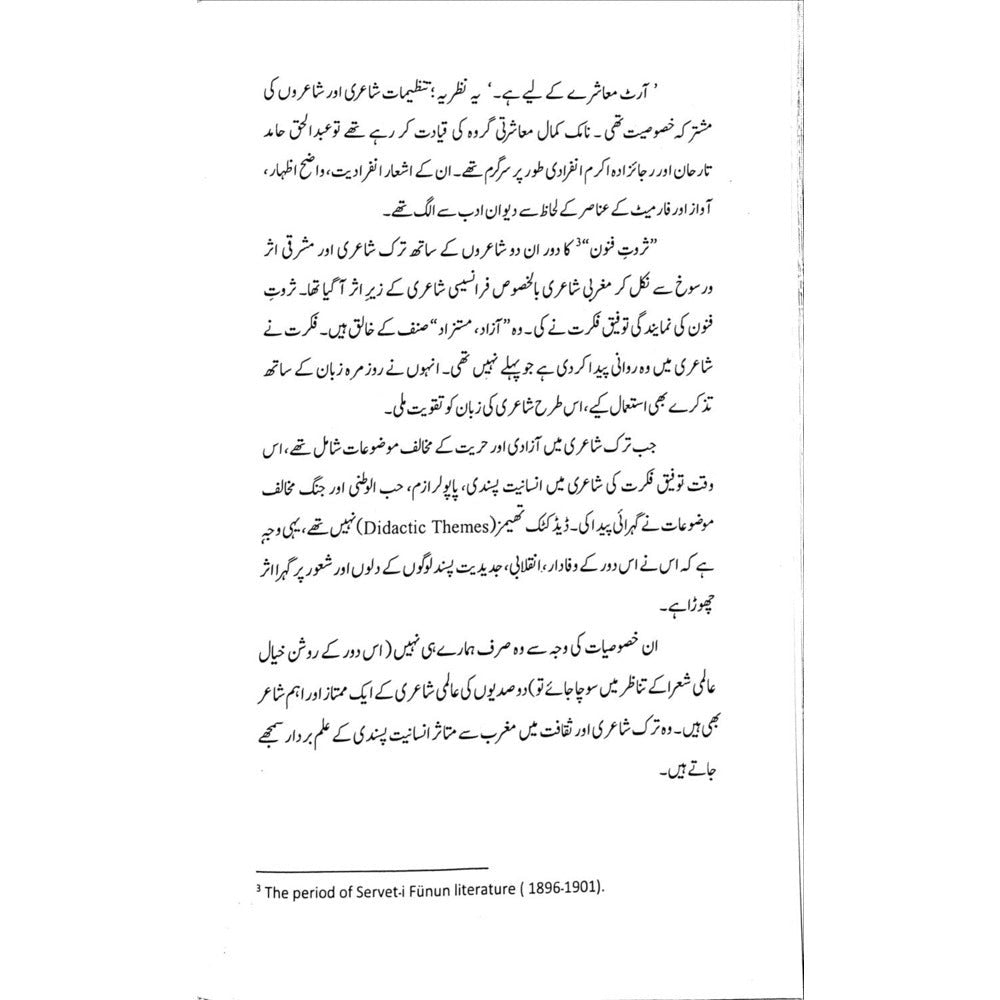 ’ آرٹ معاشرے کے لیے ہے۔‘ یہ نظریہ ؛تنظیمات شاعری اور شاعروں کی
مشترکہ خصوصیت تھی ۔ نامک کمال معاشرتی گروہ کی قیادت کر رہے تھے تو عبدالحق حامد
تارحان اور رجائزادہ اکرم انفرادی طور پر سرگرم تھے۔ ان کے اشعار انفرادیت، واضح اظہار،
آواز اور فارمیٹ کے عناصر کے لحاظ سے دیوان ادب سے الگ تھے۔
”ثروتِ فنون“3 کا دور ان دو شاعروں کے ساتھ ترک شاعری اور مشرقی اثر
ورسوخ سے نکل کر مغربی شاعری بالخصوص فرانسیسی شاعری کے زیرِ اثر آگیا تھا۔ ثروتِ
فنون کی نمایندگی توفیق فکرت نے کی۔ وہ ”آزاد، مستزاد“ صنف کے خالق ہیں۔ فکرت نے
شاعری میں وہ روانی پیدا کر دی ہے جو پہلے نہیں تھی۔ انہوں نے روزمرہ زبان کے ساتھ
تذکرے بھی استعمال کیے، اس طرح شاعری کی زبان کو تقویت ملی۔
جب ترک شاعری میں آزادی اور حریت کے مخالف موضوعات شامل تھے، اس
وقت توفیق فکرت کی شاعری میں انسانیت پسندی، پاپولرازم، حب الوطنی اور جنگ مخالف
موضوعات نے گہرائی پیدا کی۔ ڈیڈکٹک تھیمز(Didactic Themes) نہیں تھے، یہی وجہ
ہے کہ اس نے اس دور کے وفادار، انقلابی، جدیدیت پسند لوگوں کے دلوں اور شعور پر گہرا اثر
چھوڑا ہے۔
ان خصوصیات کی وجہ سے وہ صرف ہمارے ہی نہیں( اس دور کے روشن خیال
عالمی شعرا کے تناظر میں سوچا جائے تو) دو صدیوں کی عالمی شاعری کے ایک ممتاز اور اہم شاعر
بھی ہیں۔ وہ ترک شاعری اور ثقافت میں مغرب سے متاثر انسانیت پسندی کے علم بردار سمجھے
جاتے ہیں۔
3 The period of Servet-i Fünun literature ( 1896-1901).